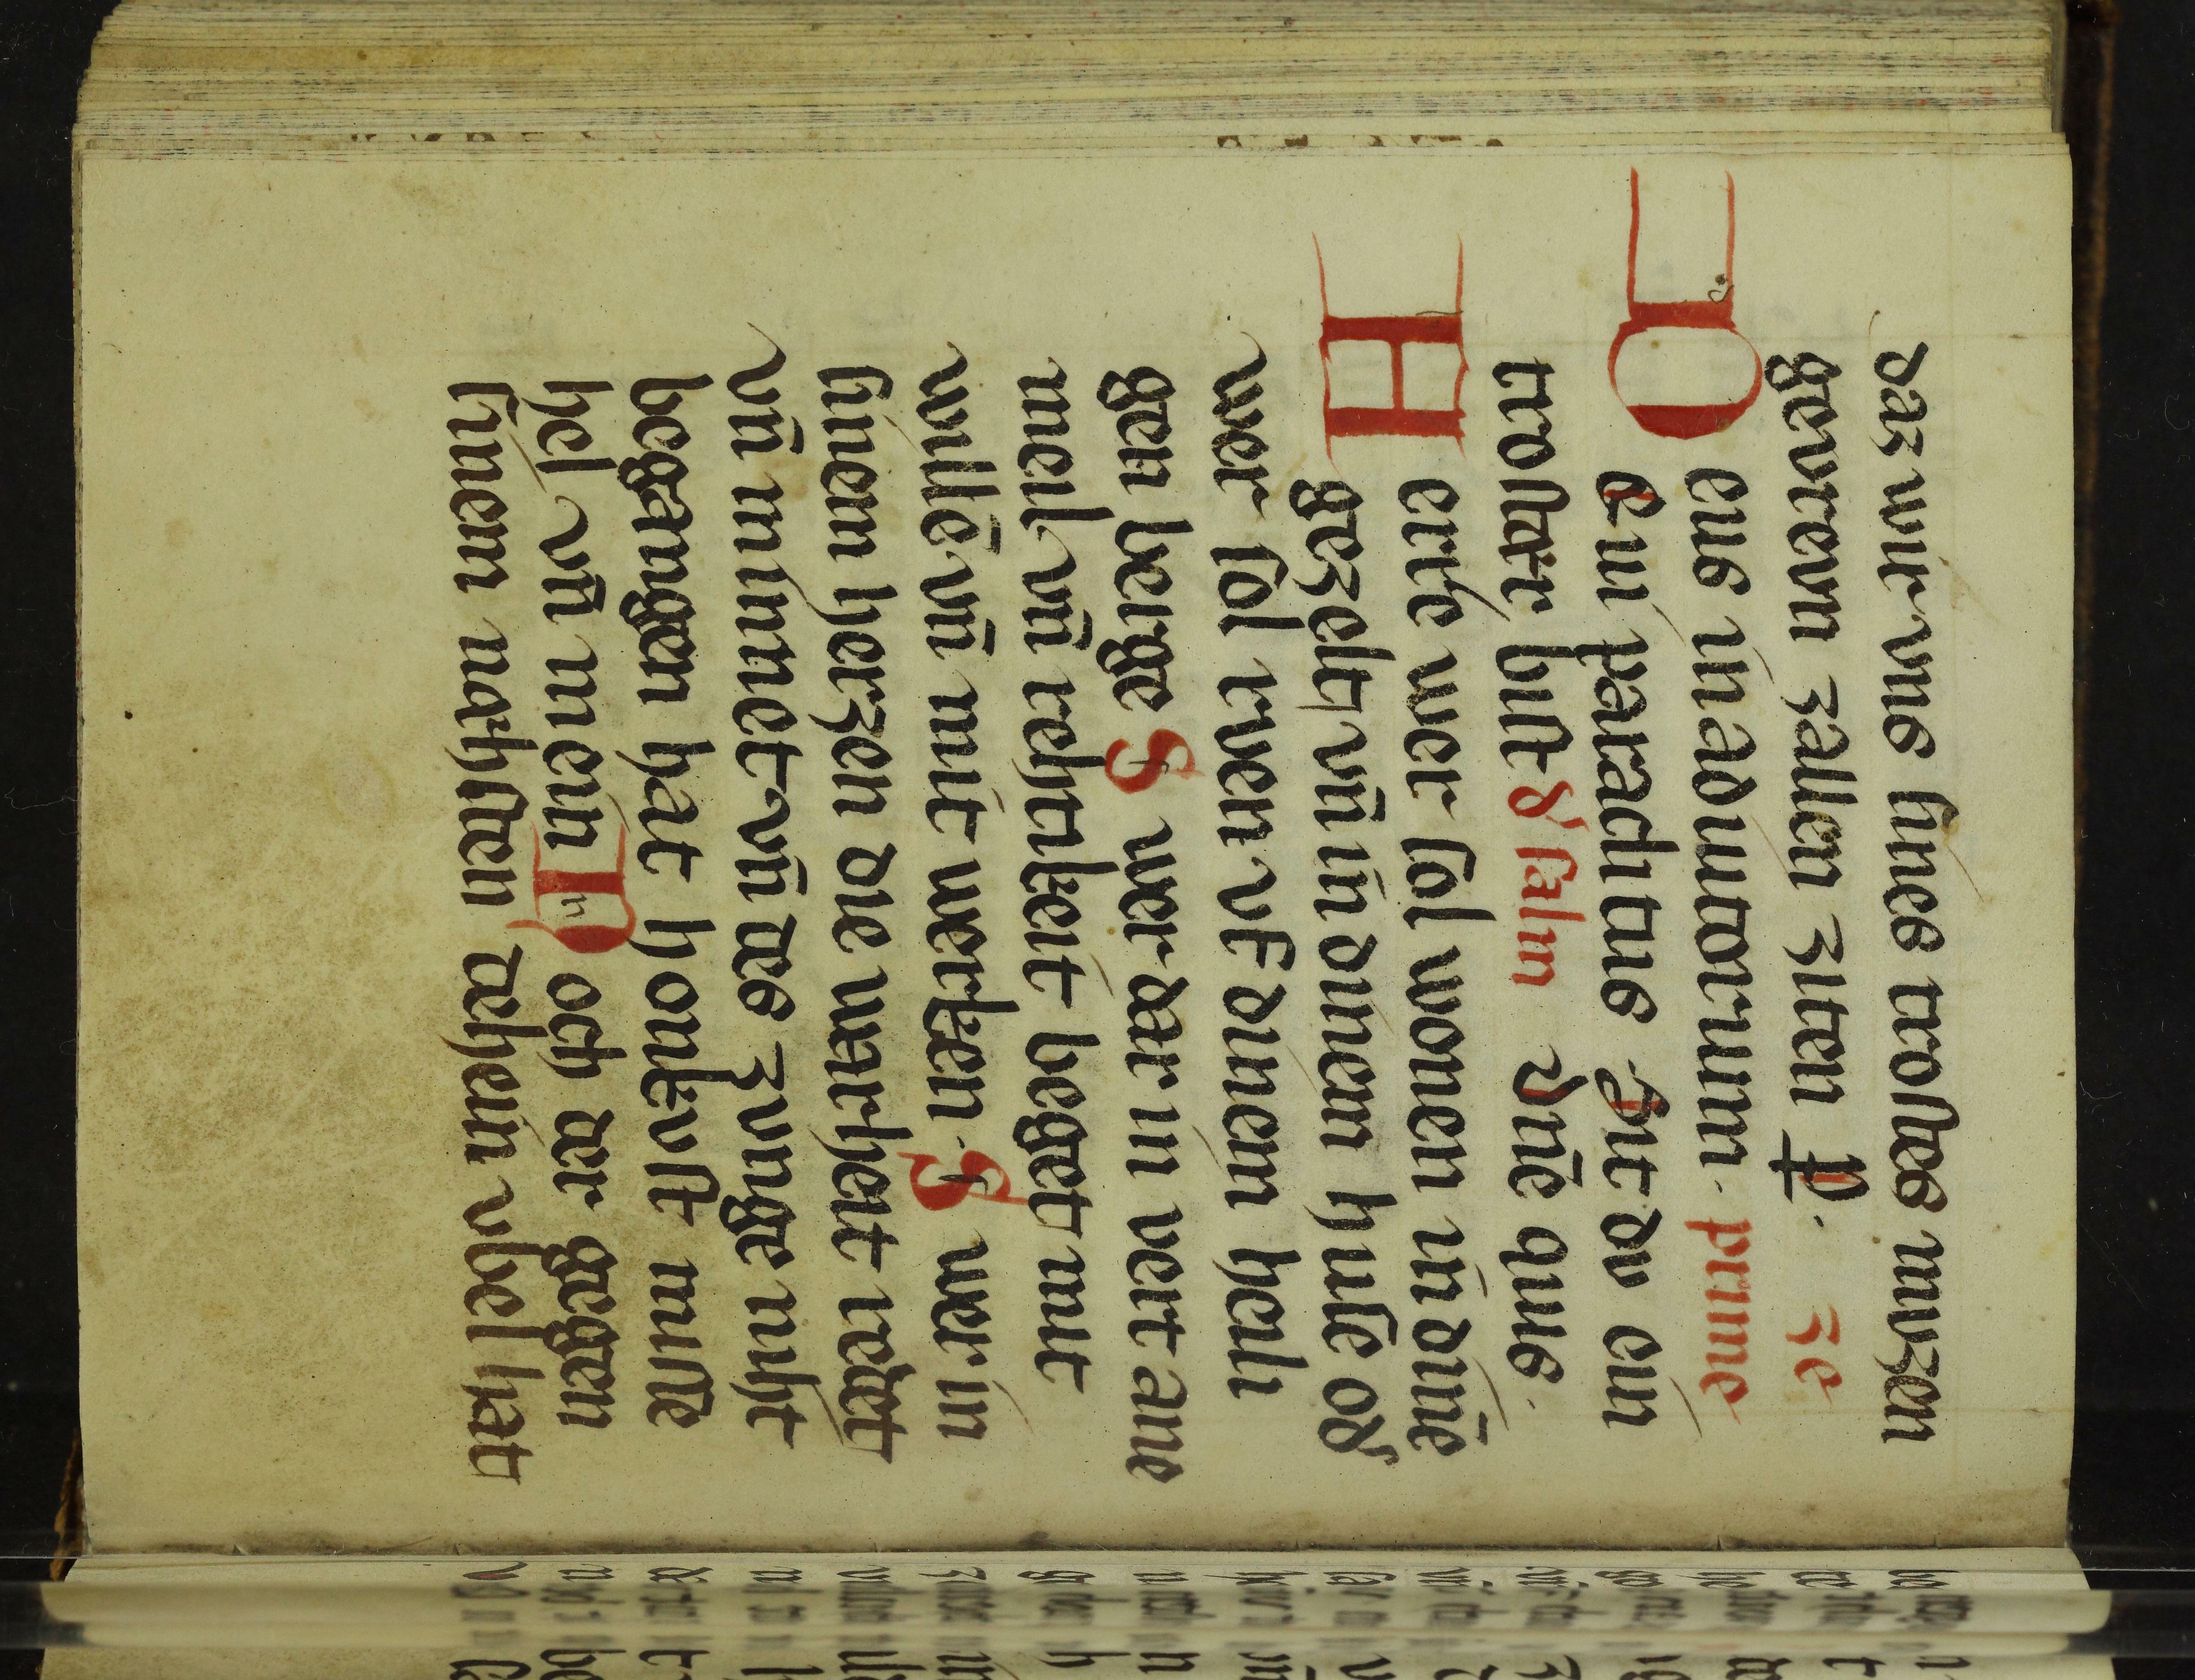 daz wir vns sines trostes mvzen
gevrevn zallen ziten p. ze
Deus in adiutorium. prime
eni paraclitus Sit dv ein
troster bist psalm Dn̄e quis.
Herre wer sol wonen in dine
gezelt vn̄ in dinem huse Od
wer sol rven vf dinem heili
gen berge S wer dar in vert ane
meil vn̄ rehtikeit beget mit
willē vn̄ mit werken. S wer in
sinem herzen die warheit reitt
vn̄ minnet vn̄ des zvnge niht
begangen hat honkvst misse
hel vn̄ mein Noch der gegen
sinem nachsten dehein vbel hatt